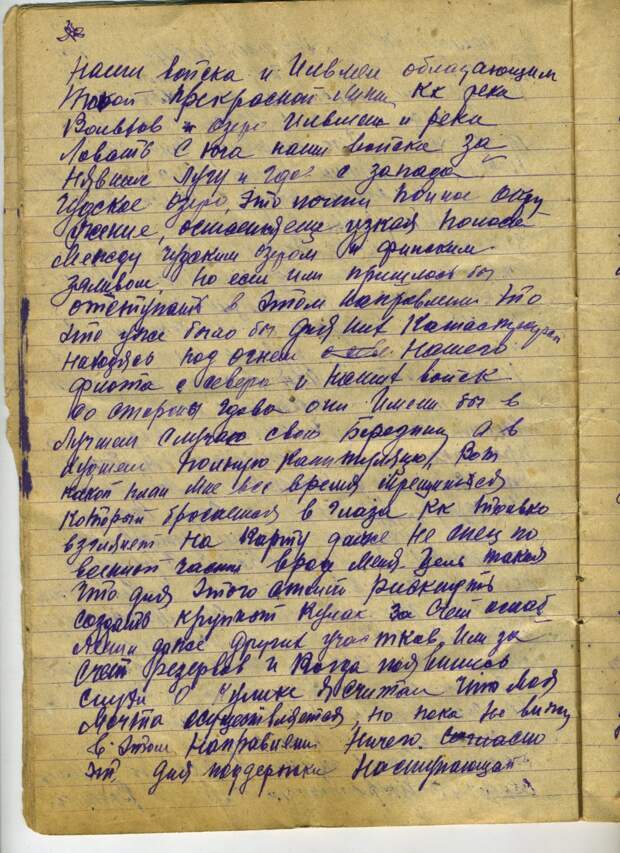 наши войска и Илвмен обладающим
такой прекрасной линии кк река
Волхов и озеро Илвмень и река
Ловать с юга наши войска за
нявшие Лугу и Гдов с запада
Чудское озеро, Это почти полное окру
жение, оставляеще узкая полоса
между чудским озером и финским
заливом, но если им пришлось бы
отступать в этом направлении то
это уже было бы для них Катастрофой
находясь под огнем нашего
флота с севера и наших войск
со стороны Гдова они имели бы в
лучшем случаю свою Березину а в
худшем полную капитуляцию, Вот
какой план мне все время мерещится
который бросается в глаза кк только
взглянет на карту даже не спец по
военной части вроде меня Цель такая
что для этого стоит рискнуть
создать крупной кулак за счет ослаб
ления даже других участков, или за
счет резервов и когда появились
слухи о Кулике я считал что моя
мечта осуществляется, но пока не вижу
в этом направлении ничего согласно
для поддержки наступающать